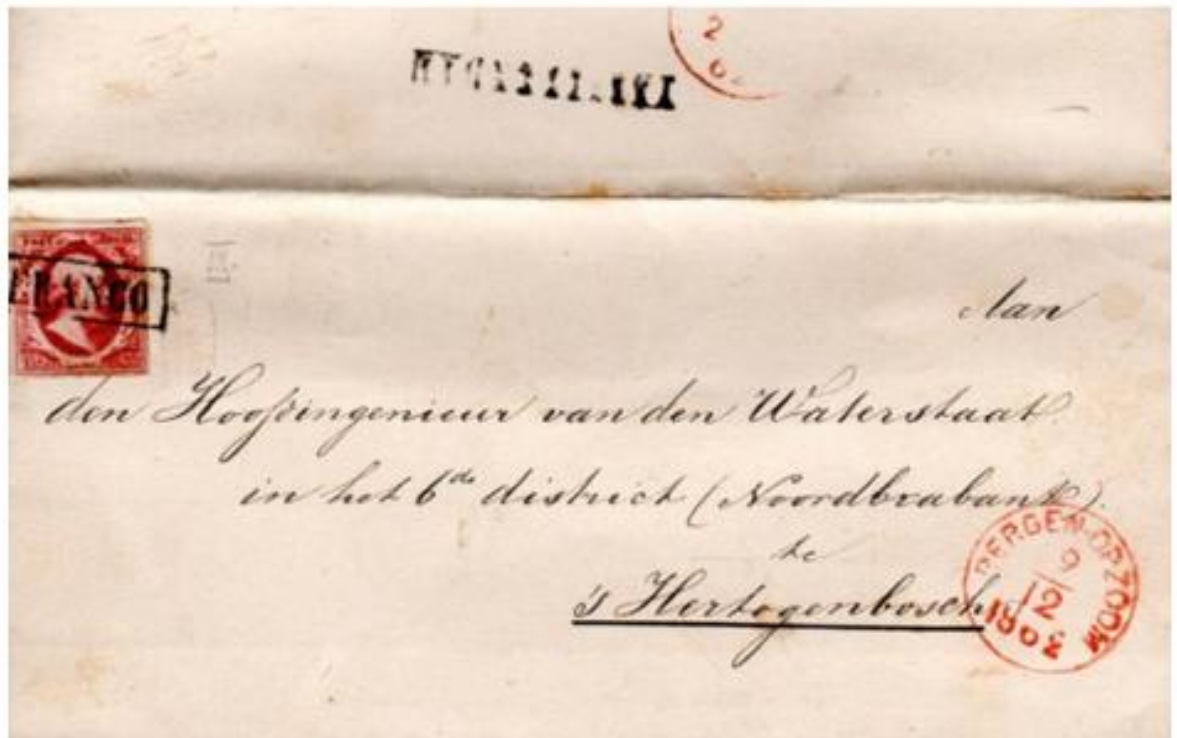 2
6
FRANCO
Aan
den Hoofdingenieur van den Waterstaat
in het 6de district (Noordbrabant).
te
's Hertogenbosch
BERGEN-OPZOOM
9
12
1863